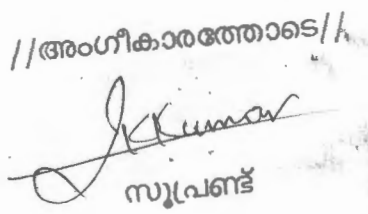 //അംഗീകാരത്തോടെ//
JKKumar
സൂപ്രണ്ട്